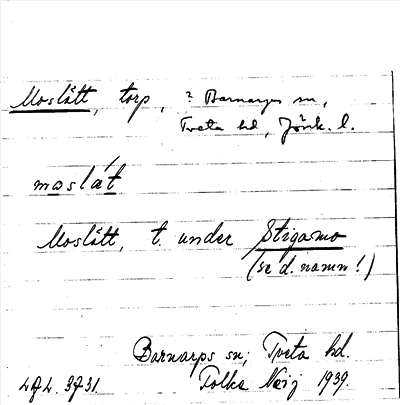 Moslätt, torp, ? Barnarps sn,
Tveta hd, Jönk. l.
moslát
Moslätt, t. under Stigamo
(se d. namn!)
Barnarps sn, Tveta hd.
Folke
1939.